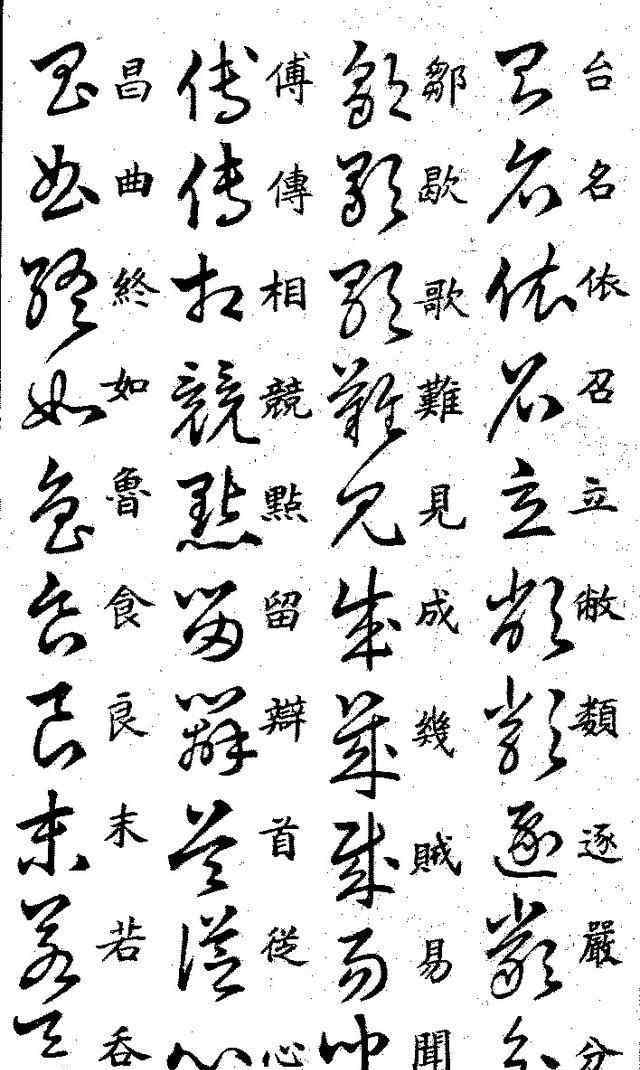 台名依召立敝類逐嚴分
鄒歇歌難見成幾賊易聞
傅傳相競點留辯首從心
昌曲終如魯食良末若吞